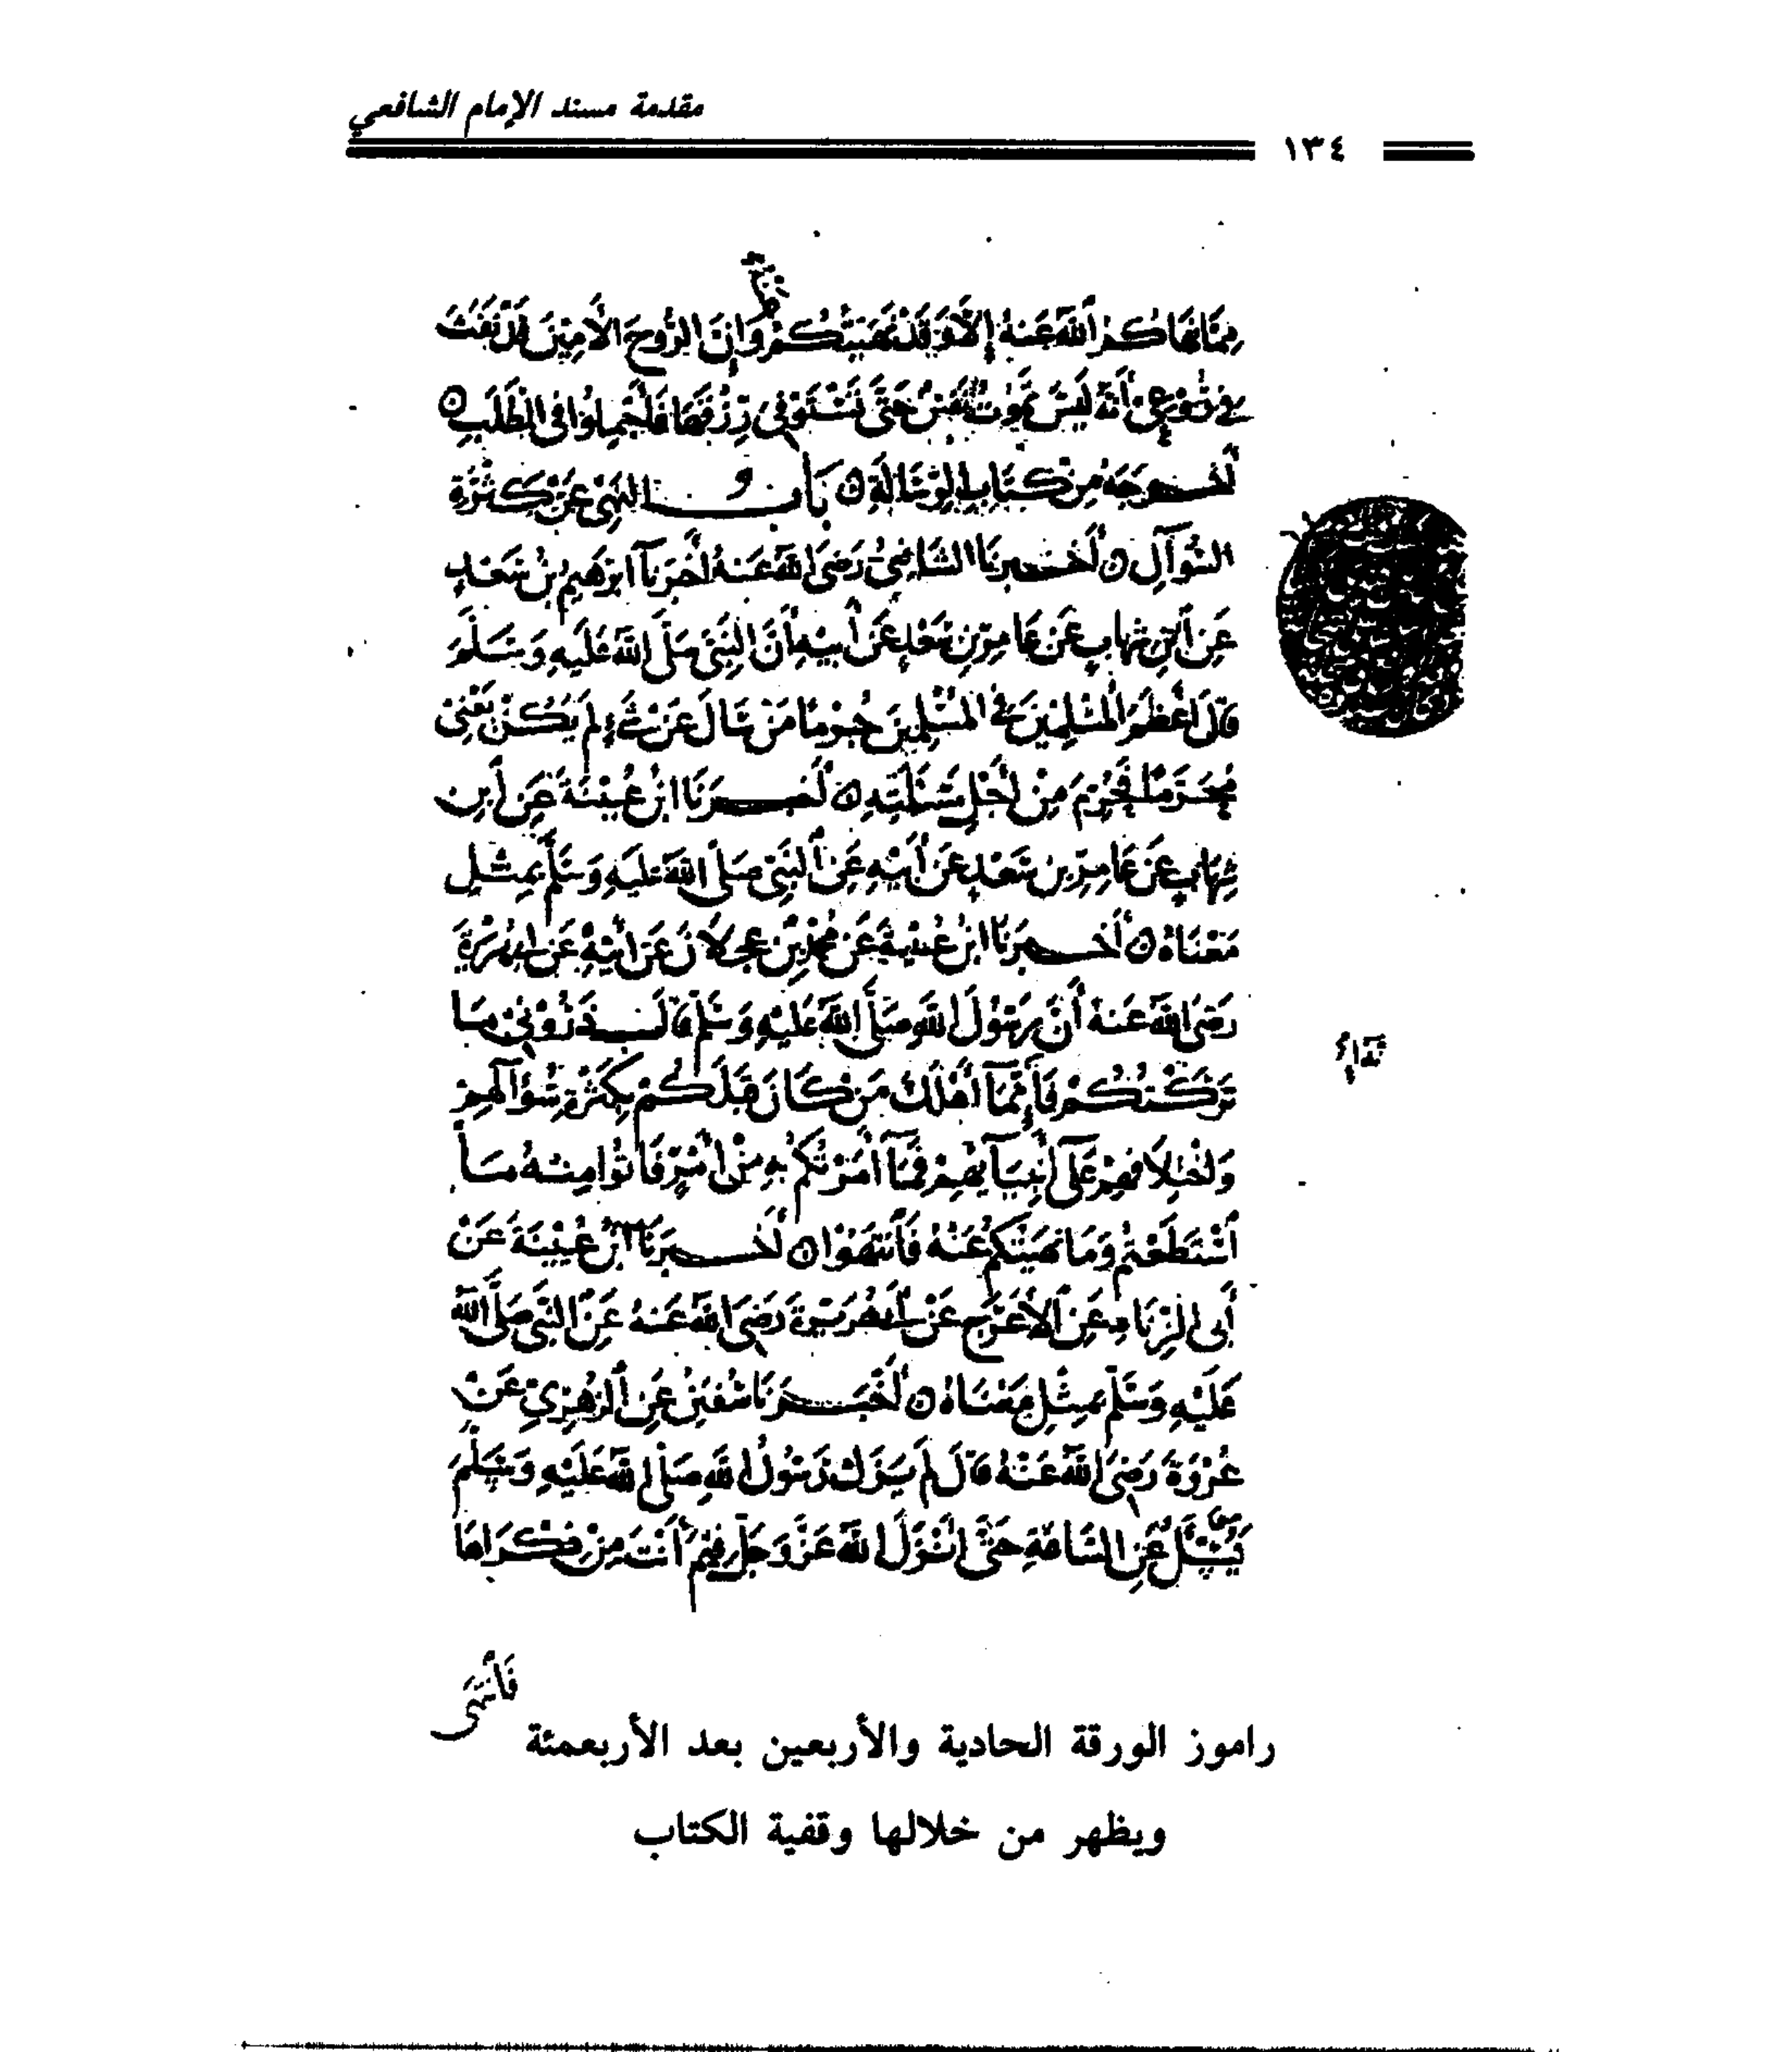 مقدمة مسند الإمام الشافعي
١٣٤
مِمَّا نَهَاكُمُ اللَّهُ عَنهُ إِلَّا وَقَدْ نَهَيْتُكُمْ وَإِنَّ الرُّوحَ الأَمِينَ قَدْ نَفَثَ
فِي رُوعِي أَنَّهُ لَيْسَ تَمُوتُ نَفْسٌ حَتَّى تَسْتَوْفِيَ رِزْقَهَا فَأَجْمِلُوا فِي الطَّلَبِ ه
أَخرَجَهُ مِنْ كِتَابِ الرِّسَالَةِ ه بَابُ النَّهْيِ عَنْ كَثْرَةِ
السُّوَآلِ ه أَخبرنَا الشَّافِعِيُّ رَضِيَ اللَّهُ عَنهُ أَخْبَرَنَا ابرهيم بنُ سَعْدٍ
عَنِ ابْنِ شِهَابٍ عَنْ عَامِرِ بنِ سَعْدٍ عَنْ أَبِيهِ أَنَّ النَّبِيَّ صَلَّى اللَّهُ عَلَيهِ وَسَلَّمَ
قَالَ أَعْظَمُ المُسْلِمِينَ فِي المُسْلِمِينَ جُرْمًا مَنْ سَأَلَ عَنْ شَيْءٍ لَمْ يَكُنْ يَعْنِي
مُحَرَّمًا فَحُرِّمَ مِنْ أَجْلِ مَسْئَلَتِهِ ه أَخبَرَنَا ابْنُ عُيَيْنَةَ عَنِ ابنِ
شِهَابٍ عَنْ عَامِرِ بنِ سَعْدٍ عَنْ أَبِيهِ عَنِ النَّبِيِّ صَلَّى اللَّهُ عَلَيهِ وَسَلَّمَ بِمِثْلِ
مَعْنَاهُ ه أَخبرَنَا ابنُ عُيَيْنَةَ عَنْ مُحَمَّدِ بْنِ عَجْلَانَ عَنْ أَبِيهِ عَنْ ابِي هُرَيْرَةَ
رَضِيَ اللَّهُ عَنهُ أَنَّ رَسُولَ اللَّهِ صَلَّى اللَّهُ عَلَيْهِ وَسَلَّمَ قَالَ ذَرُونِي مَا
تَرَكْتُكُمْ فَإِنَّمَا أَهْلَكَ مَنْ كَانَ قَبْلَكُمْ بِكَثْرَةِ سُؤَآلِهِمْ
وَاخْتِلَافِهِمْ عَلَى أَنْبِيَآئِهِمْ فَمَآ أَمَرْتُكُمْ بِهِ مِنْ أَمْرٍ فَأْتُوا مِنهُ مَا
اسْتَطَعْتُمْ وَمَا نَهَيْتُكُمْ عَنْهُ فَانْتَهُوْا ه أَخبَرَنَا ابْنُ عُيَيْنَةَ عَنْ
أَبِي الزِّنَادِ عَنِ الأَعْرَجِ عَنْ أَبِي هُرَيْرَةَ رَضِيَ اللَّهُ عَنهُ عَنِ النَّبِيِّ صَلَّى اللَّهُ
عَلَيْهِ وَسَلَّمَ بِمِثْلِ مَعْنَاهُ ه أَخْبَرَنَا سُفْيَنُ عَنِ الزُّهْرِيِّ عَنْ
عُرْوَةَ رَضِيَ اللَّهُ عَنْهُ قَالَ لَمْ يَزَلْ رَسُولُ اللَّهِ صَلَّى اللَّهُ عَلَيْهِ وَسَلَّمَ
يُسْئَلُ عَنِ السَّاعَةِ حَتَّى أَنْزَلَ اللَّهُ عَزَّ وَجَلَّ فِيمَ أَنْتَ مِنْ ذِكْرَاهَا
راموز الورقة الحادية والأربعين بعد الأربعمئة
ويظهر من خلالها وقفية الكتاب